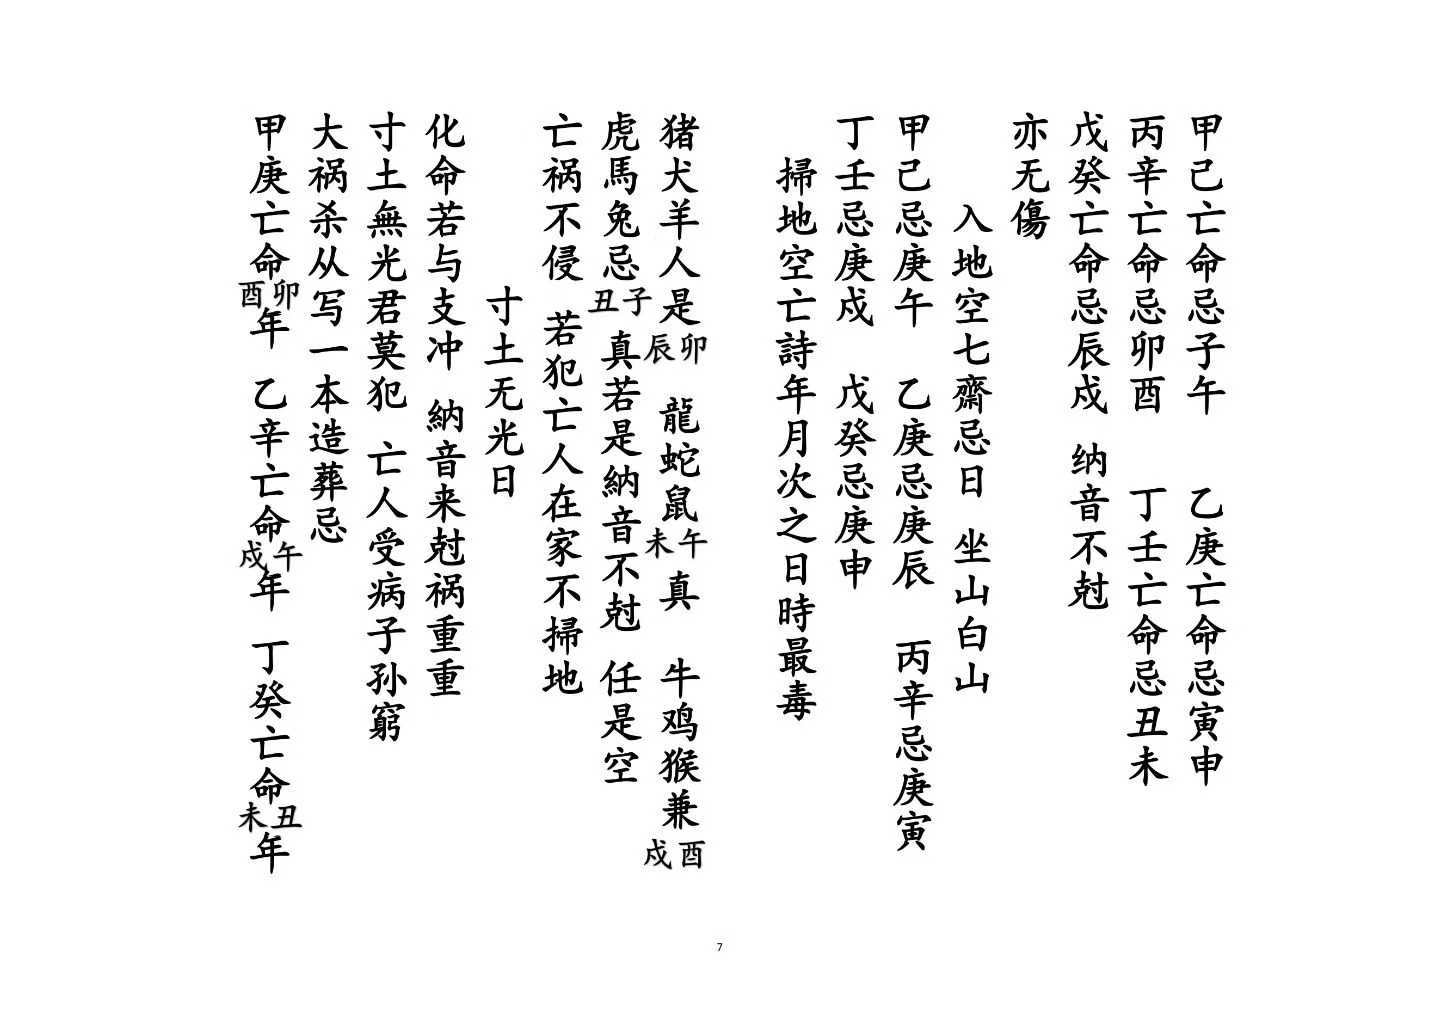 甲己亡命忌子午　乙庚亡命忌寅申
丙辛亡命忌卯酉　丁壬亡命忌丑未
戊癸亡命忌辰戍　纳音不尅
亦无傷
入地空七齋忌日　坐山向山
甲己忌庚午　乙庚忌庚辰　丙辛忌庚寅
丁壬忌庚戍　戊癸忌庚申
掃地空亡詩年月次之日時最毒
猪犬羊人是卯辰　龍蛇鼠午未真　牛鸡猴兼酉戍
虎馬兔忌子丑　真若是納音不尅　任是空
亡祸不侵　若犯亡人在家不掃地
寸土无光日
化命若与支冲　納音来尅祸重重
寸土無光君莫犯　亡人受病子孙窮
大祸杀从写一本造葬忌
甲庚亡命卯酉年　乙辛亡命午戍年　丁癸亡命丑未年
7